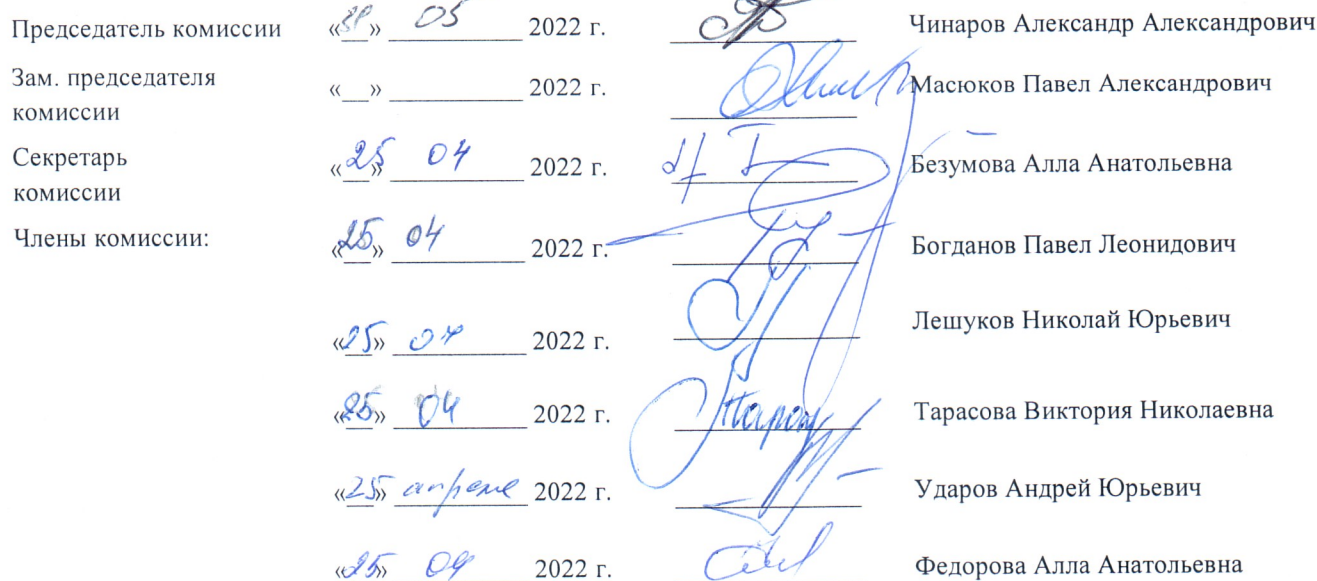 Председатель комиссии «__» 05 2022 г. Чинаров Александр Александрович
Зам. председателя
комиссии «__» ________ 2022 г. Масюков Павел Александрович
Секретарь
комиссии «25» 04 2022 г. Безумова Алла Анатольевна
Члены комиссии: «25» 04 2022 г. Богданов Павел Леонидович
«25» 04 2022 г. Лешуков Николай Юрьевич
«25» 04 2022 г. Тарасова Виктория Николаевна
«25» апреля 2022 г. Ударов Андрей Юрьевич
«25» 04 2022 г. Федорова Алла Анатольевна